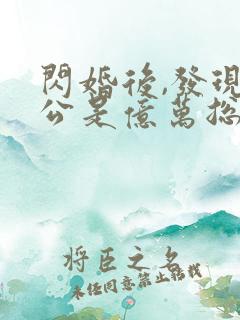 閃婚後,發現
公是億萬總
將臣之名
未經同意禁止轉載